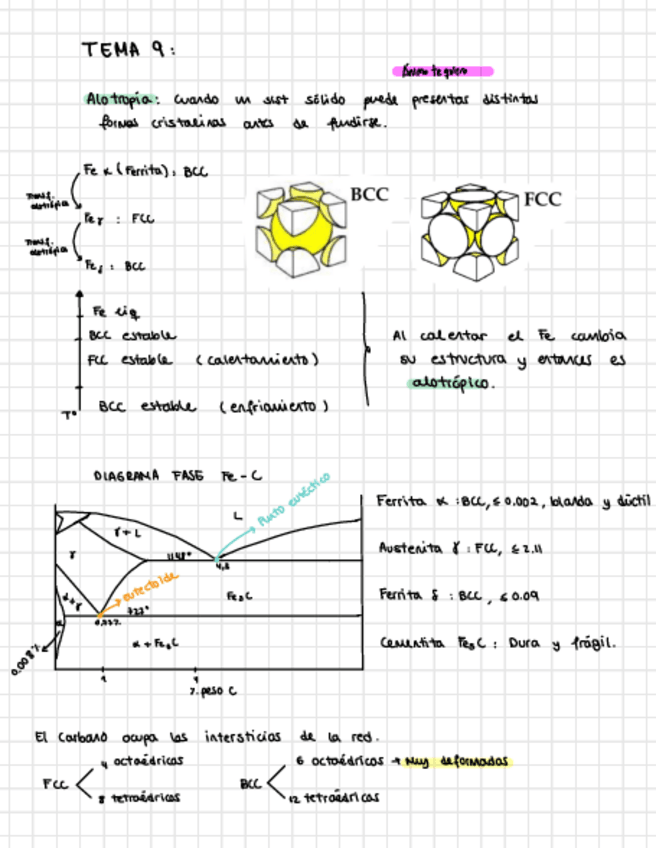 TEMA 9:
Ánimo te quiero
Alotropía: Cuando un sist sólido puede presentar distintas
formas cristalinas antes de fundirse.
Fe α (Ferrita): BCC
Transf. alotrópica
Fe γ : FCC
Transf. alotrópica
Fe δ : BCC
BCC
FCC
Fe liq
BCC estable
FCC estable (calentamiento)
BCC estable (enfriamiento)
Tº
Al calentar el Fe cambia
su estructura y entonces es
alotrópico.
DIAGRAMA FASE Fe-C
Punto eutéctico
L
γ+L
γ
1148°
4,3
eutectoide
Fe₃C
α+γ
727°
α
α + Fe₃C
% peso C
Ferrita α : BCC, ≤ 0.002, blanda y dúctil
Austenita γ : FCC, ≤ 2.11
Ferrita δ : BCC, ≤ 0.09
Cementita Fe₃C : Dura y frágil.
El Carbono ocupa los intersticios de la red.
FCC
4 octaédricos
8 tetraédricos
BCC
6 octaédricos → Muy deformados
12 tetraédricos